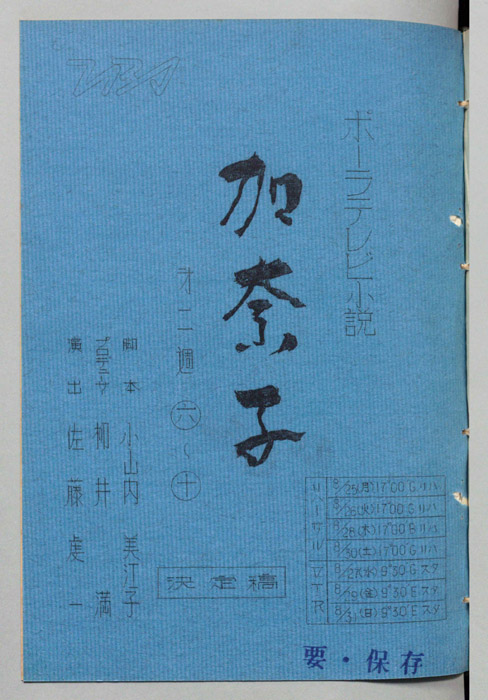 ポーラテレビ小説
加奈子
オ二週 ㊅〜㊉
脚本 小山内 美江子
プロデューサー 柳井 満
演出 佐藤 虔一
決定稿
リハーサル
8/25(月)17°00'Gリハ
8/26(火)17°00'Gリハ
8/28(木)17°00'Bリハ
8/30(土)17°00'Gリハ
VTR
8/27(水)9°30'Gスタ
8/29(金)9°30'Eスタ
8/31(日)9°30'Eスタ
要・保存